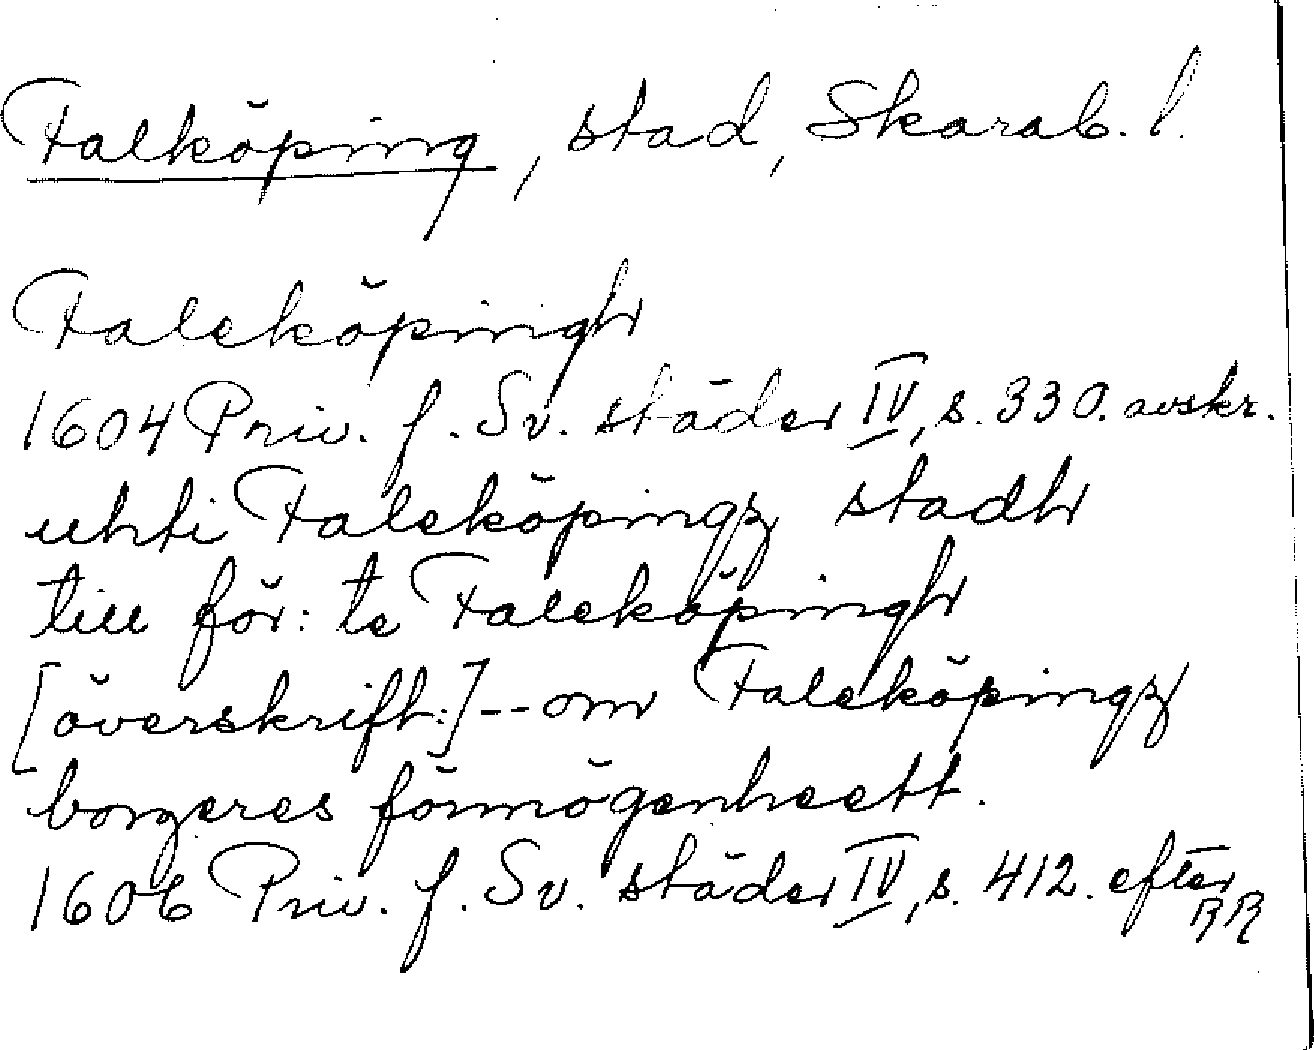 Falköping, stad, Skarab. l.
Faleköpingh
1604 Priv. f. Sv. städer IV, s. 330. avskr.
uhti Faleköpingz stadh
till för: te Faleköpingh
[överskrift:] -- om Faleköpingz
borgeres förmögenheett.
1606 Priv. f. Sv. städer IV, s. 412. efter
RR